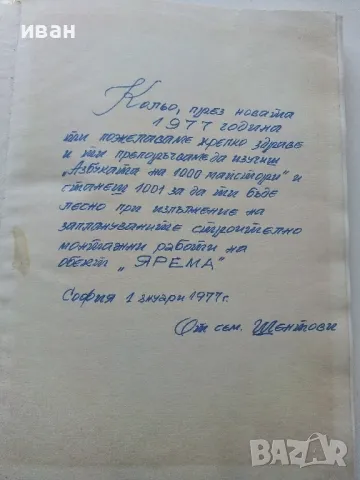 иван
Кольо, през новата
1977 година
ти пожелаваме крепко здраве
и ти препоръчваме да изучиш
„Азбуката на 1000 майстори" и
станеш 1001 за да ти бъде
лесно при изпълнение на
заплануваните строително
монтажни работи на
обект „ЯРЕМА"
София 1 януари 1977 г.
От сем. Шентови
BAZAR